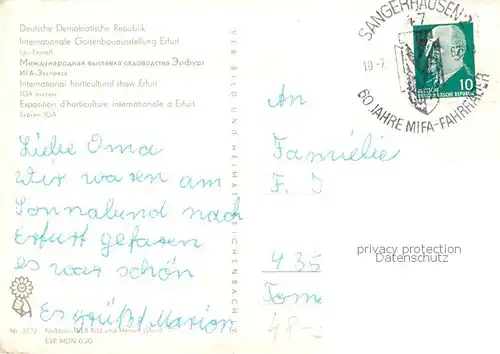 Deutsche Demokratische Republik
Internationale Gartenbauausstellung Erfurt
Iga-Expreß
Международная выставка садоводства Эрфурт
ИГА-Экспресс
International horticultural show Erfurt
IGA express
Exposition d'horticulture internationale à Erfurt
Express IGA
Liebe Oma
Wir waren am
Sonnabend nach
Erfurt gefaren
es war schön
Es grüßt Marion
Nr. 3272
Bild und Heimat
EVP MDN 0,20
VEB BILD UND HEIMAT REICHENBACH
SANGERHAUSEN
47
60 JAHRE MIFA-FAHRRÄDER
10
DEUTSCHE
DEMOKRATISCHE REPUBLIK
An
Familie
F. J
435
privacy protection
VARIOUS PRODUCTS